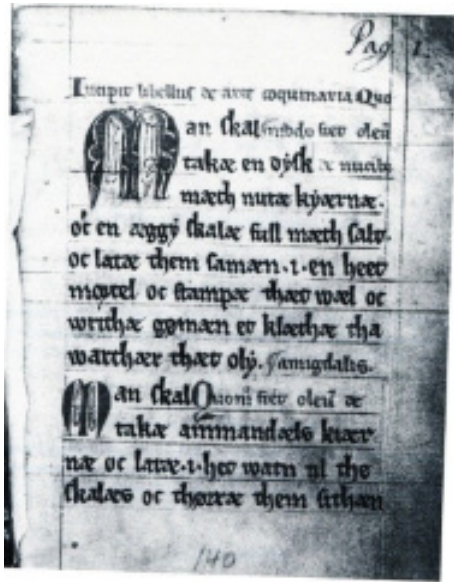 Pag 1.
Incipit libellus de arte coquinaria Quo
Man skal modo fiet oleū
takæ en dysk æ nucibꝫ
mæth nutæ kyærnæ.
oc en æggy skalæ full mæth salt.
oc latæ them samæn .i. en heet
mortel oc stampæ thæt wæl oc
writhæ gømæn et klæthæ tha
warthær thæt oly. amigdalis.
Man skal Quom̄ fiet oleū de
takæ ammandæls kiær
næ oc latæ .i. het watn til the
skalæs oc thørræ them sithæn
140